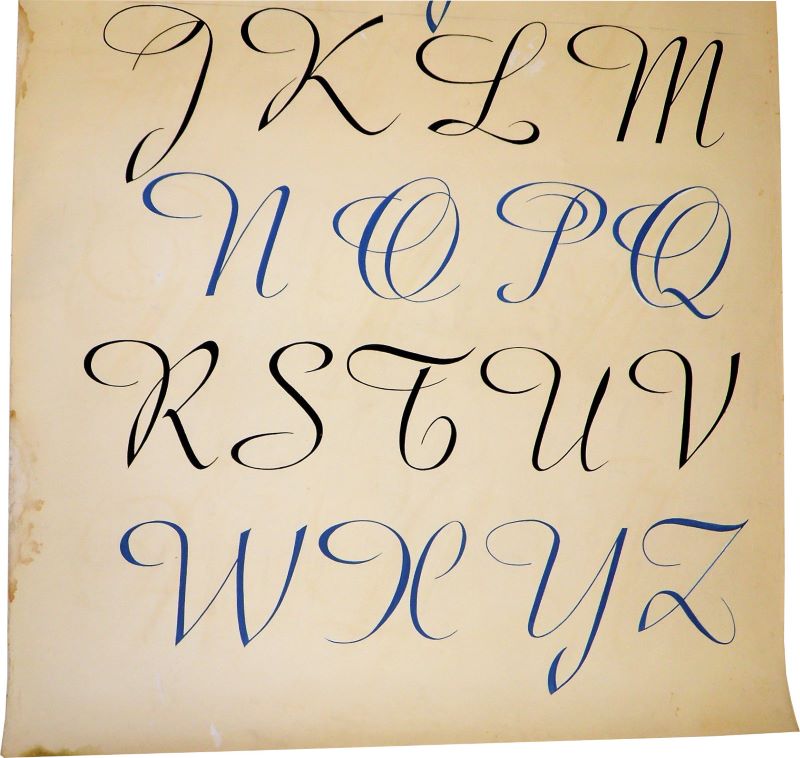 J K L M
N O P Q
R S T U V
W X Y Z